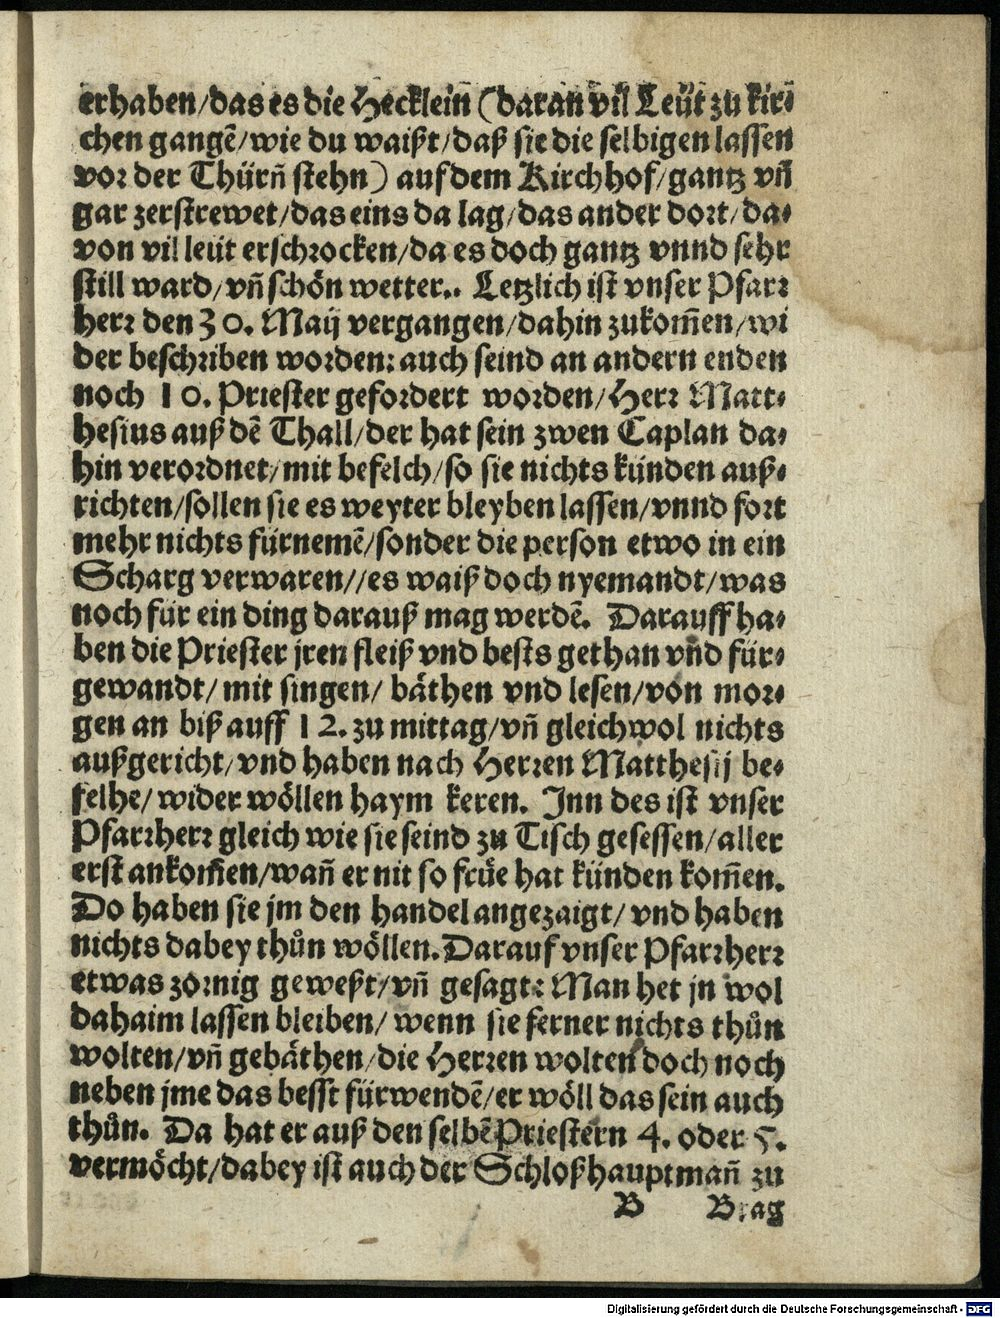 erhaben/das es die Hecklein (daran vil Leüt zu kir⸗
chen gangē/wie du waißt/daß sie die selbigen lassen
vor der Thürn̄ stehn) auf dem Kirchhof/gantz vn̄
gar zerstrewet/das eins da lag/das ander dort/da⸗
von vil leüt erschrocken/da es doch gantz vnnd sehr
still ward/vn̄ schön wetter.. Letzlich ist vnser Pfarr
herr den 30. Maij vergangen/dahin zukom̄en/wi
der beschriben worden: auch seind an andern enden
noch 10. Priester gefordert worden/Herr Matt⸗
hesius auß dē Thall/der hat sein zwen Caplan da⸗
hin verordnet/mit befelch/so sie nichts künden auß⸗
richten/sollen sie es weyter bleyben lassen/vnnd fort
mehr nichts fürnemē/sonder die person etwo in ein
Scharg verwaren//es waiß doch nyemandt/was
noch für ein ding darauß mag werdē. Darauff ha⸗
ben die Priester jren fleiß vnd bests gethan vn̄d für⸗
gewandt/ mit singen/ bäthen vnd lesen/von mor⸗
gen an biß auff 12. zu mittag/vn̄ gleichwol nichts
außgericht/vnd haben nach Herren Matthesij be⸗
felhe/ wider wöllen haym keren. Inn des ist vnser
Pfarrherr gleich wie sie seind zu Tisch gesessen/aller
erst ankom̄en/wan̄ er nit so früe hat künden kom̄en.
Do haben sie jm den handel angezaigt/ vnd haben
nichts dabey thůn wöllen. Darauf vnser Pfarrherr
etwas zornig geweßt/vn̄ gesagt: Man het jn wol
dahaim lassen bleiben/ wenn sie ferner nichts thůn
wolten/vn̄ gebäthen/die Herren wolten doch noch
neben jme das besst fürwendē/er wöll das sein auch
thůn. Da hat er auß den selbē Priestern 4. oder 5.
vermöcht/dabey ist auch der Schloßhauptman̄ zu
B Brag
Digitalisierung gefördert durch die Deutsche Forschungsgemeinschaft - DFG